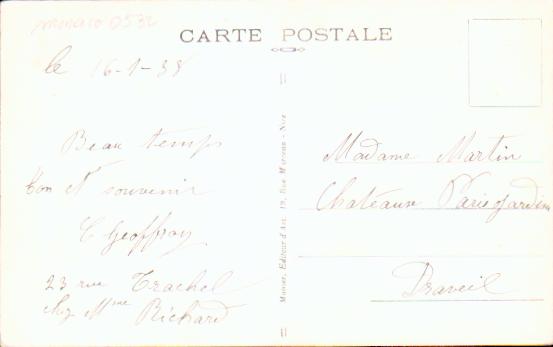 monaco 0532
CARTE POSTALE
le 16-1-38
Beau temps
bon et souvenir
C Geoffroy
23 rue Trachel
chez Mme Richard
Munier, Editeur d'Art, 19, Rue Marceau - Nice
Madame Martin
Chateaux Paris Jardin
Draveil